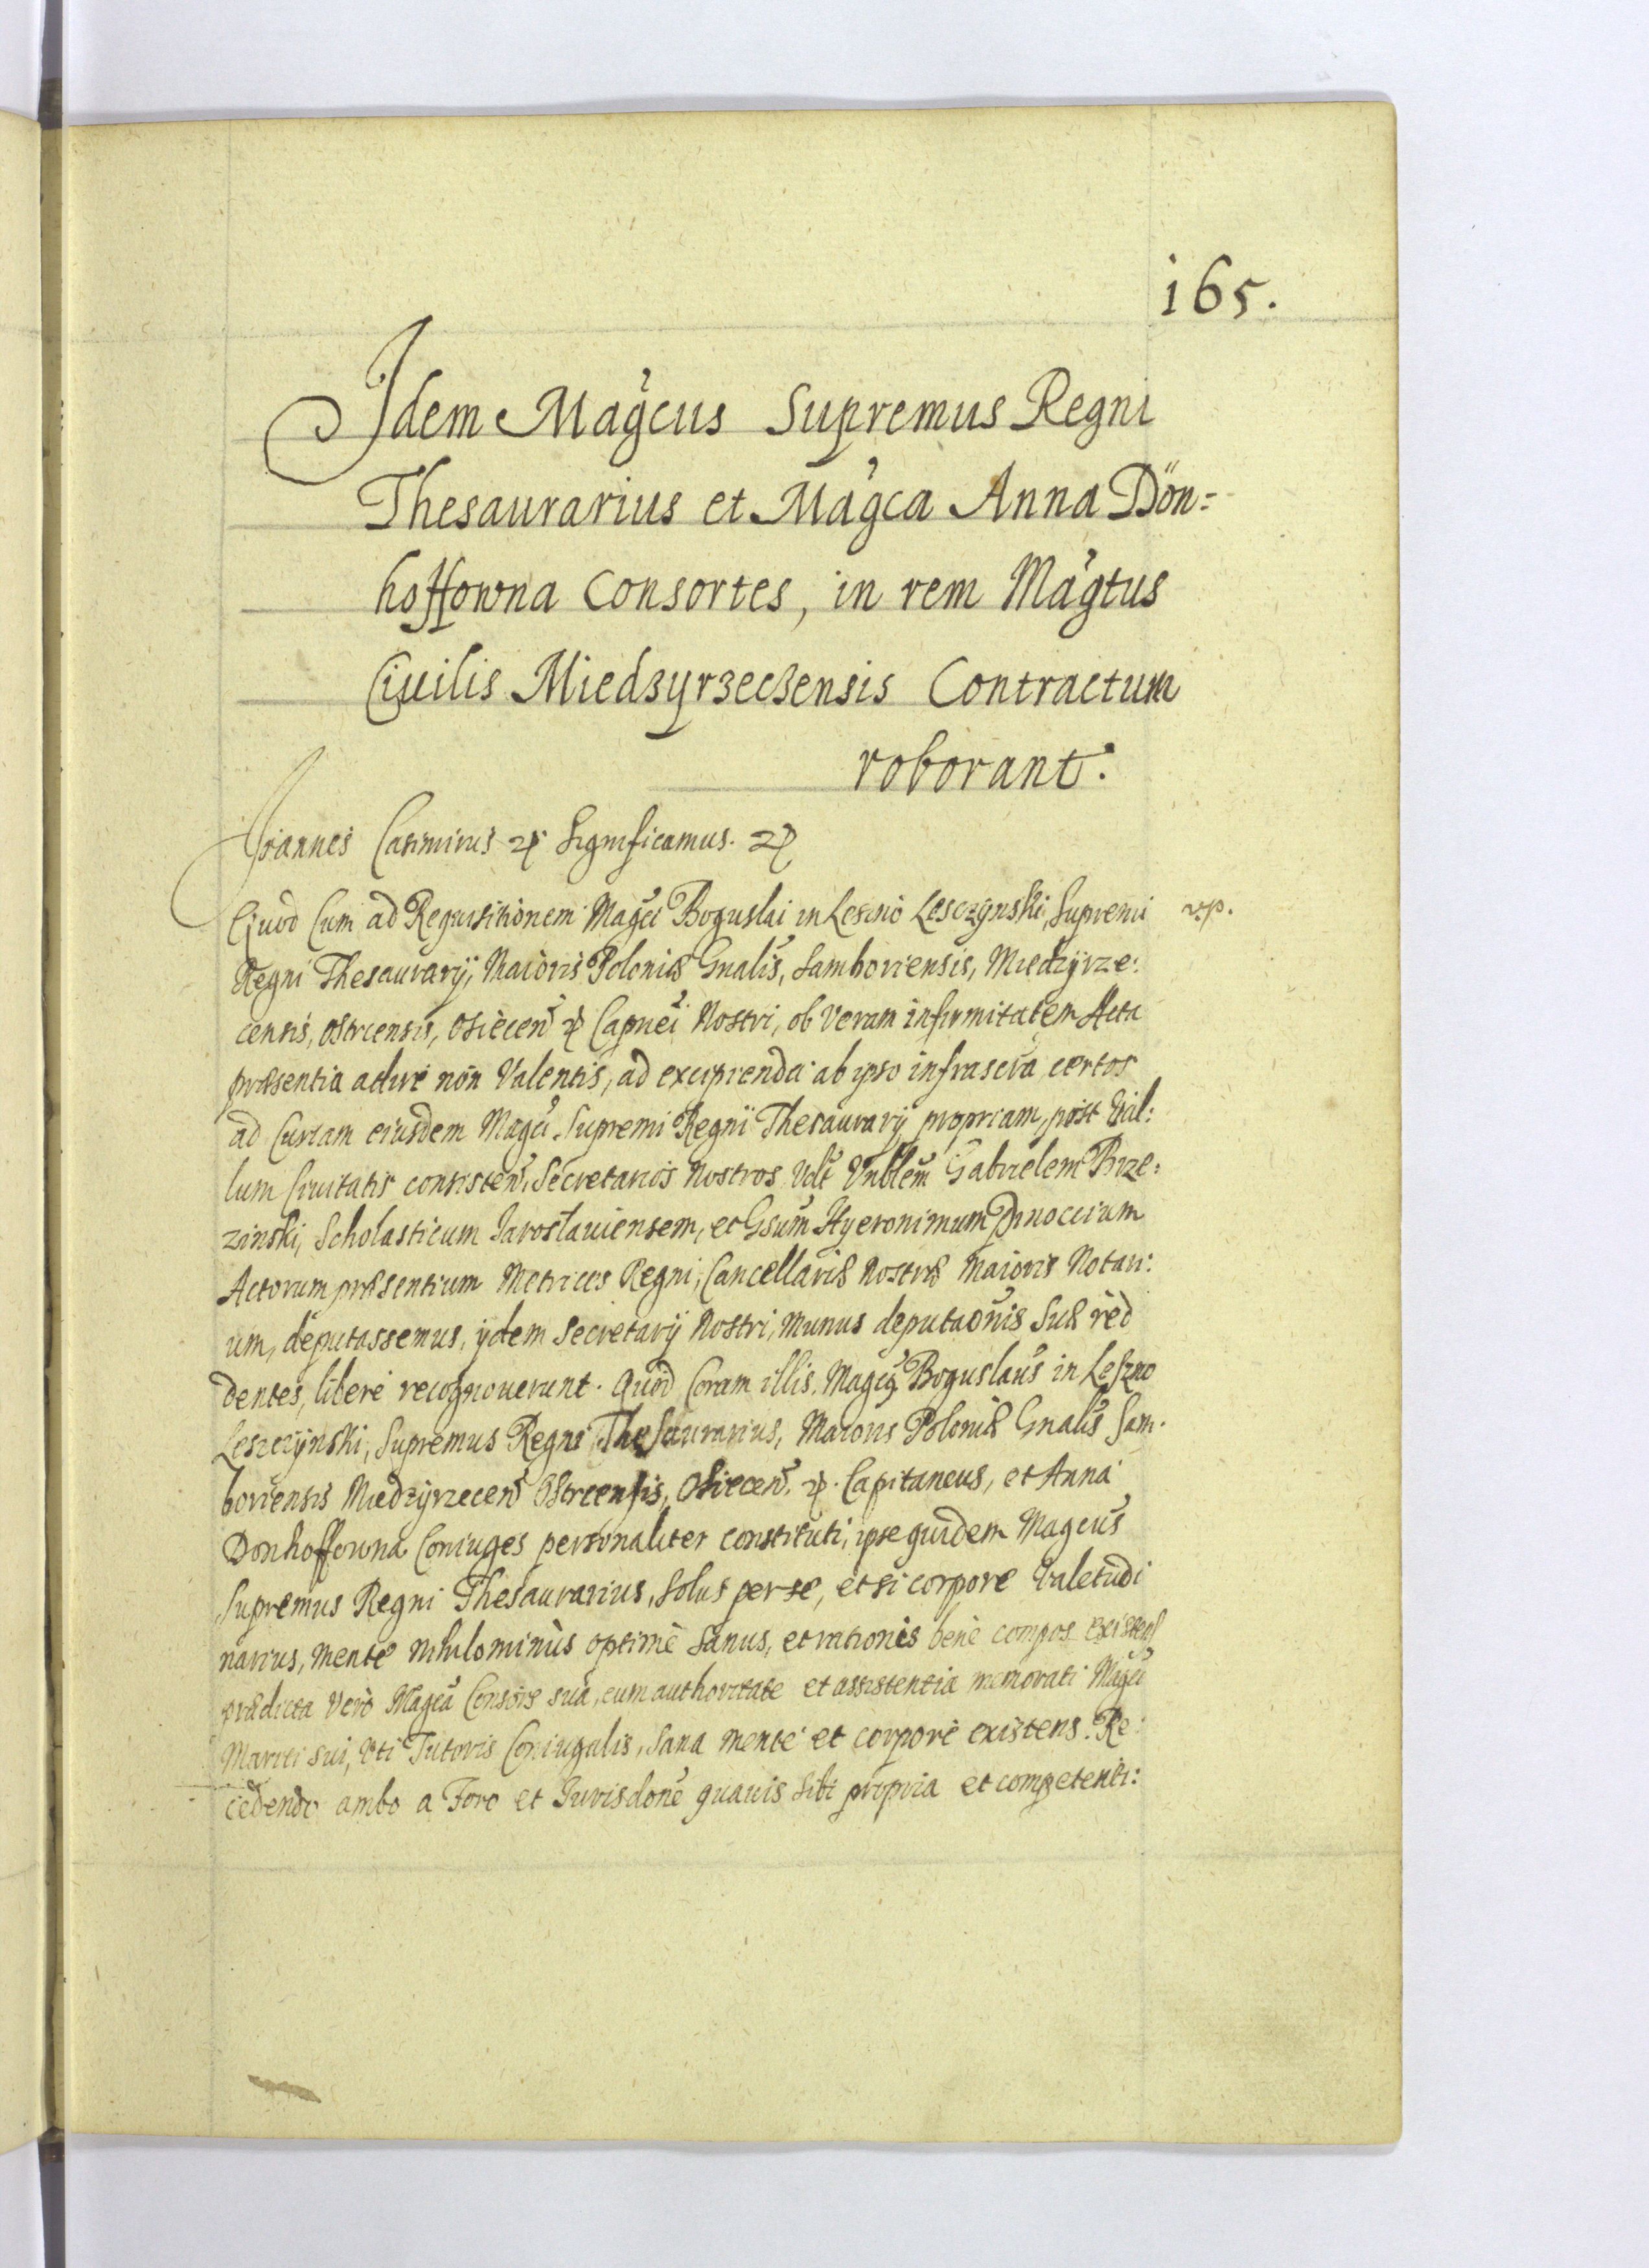 165.
Idem Magcus Supremus Regni
Thesaurarius et Magca Anna Dön=
hoffowna Consortes, in rem Magtus
Ciuilis Miedzyrzeczensis Contractum
roborant.
Joannes Casimirus Significamus.
Quod Cum ad Requisitionem Magci Boguslai in Leszno Lesczynski, Supremi
Regni Thesaurarij, Maioris Poloniæ Gnalis, Samboriensis, Miedzyrze:
censis, Ostrcensis, Osiecen Capnei Nostri, ob Veram infirmitatem Acta
præsentia adire non Valentis, ad excipienda ab ipso infrascra certos
ad Curiam eiusdem Magci Supremi Regni Thesaurarij propriam, post Val:
lum Ciuitatis consisten, Secretarios Nostros Vdt Vnblem Gabrielem Brze:
zinski, Scholasticum Jaroslauiensem, et Gsum Hyeronimum Pinoccium
Actorum præsentium Metrices Regni, Cancellariæ Nostræ Maioris Notari:
um, deputassemus, ijdem Secretarij Nostri, Munus deputaonis Suæ red
dentes, libere recognouerunt. Quod Coram illis, Magcus Boguslaus in Leszno
Leszczynski, Supremus Regni Thesaurarius, Maioris Poloniæ Gnalis Sam.
boriensis Miedzyrzecen Ostrcensis, Osiecen. Capitaneus, et Anna
Donhoffowna Coniuges personaliter constituti, ipse quidem Magcus
Supremus Regni Thesaurarius, Solus per se, etsi corpore Valetudi
narius, Mente Nihilominus optime Sanus, et rationis bene compos existens
prædicta Vero Magca Consors sua, cum authoritate et assistentia memorati Magci
Mariti sui, Vti Tutoris Coniugalis, Sana Mente et corpore existens. Re:
cedendo ambo a Foro et Jurisdone quauis Sibi propria et competenti: